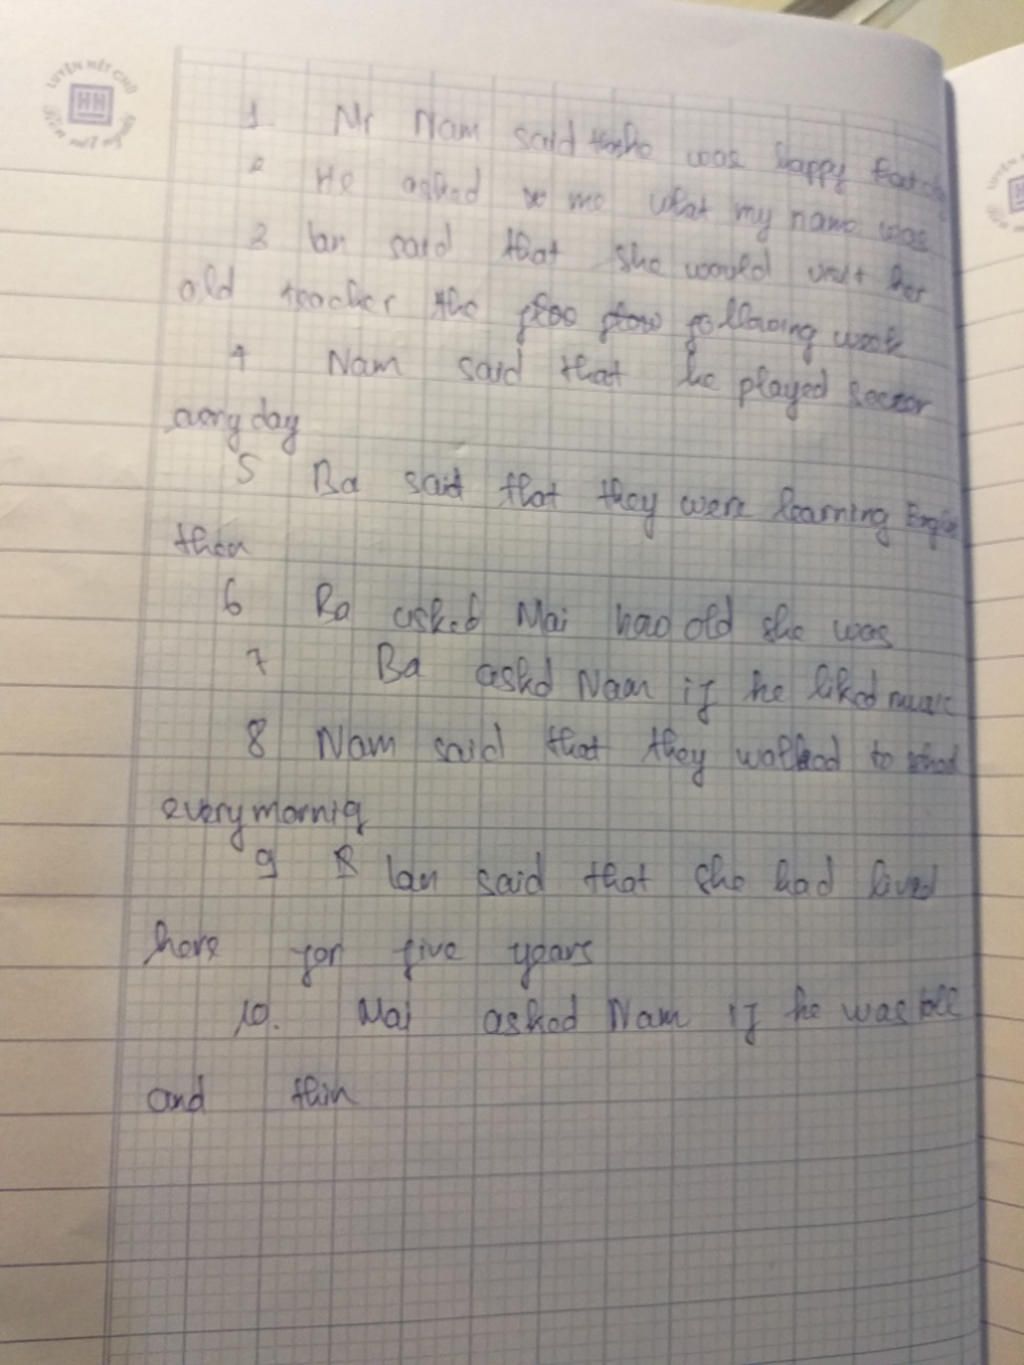 LUYỆN NÉT CHỮ
HH
1 Mr Nam said that he was happy that day
2 He asked me what my name was
3 lan said that she would visit her
old teacher the following week
4 Nam said that he played soccer
every day
5 Ba said that they were learning
then
6 Ba asked Mai hao old she was
7 Ba askd Nam if he liked music
8 Nam said that they walked to school
every morniq
9 lan said that she had lived
here for five years
10. Mai asked Nam if he was tall
and thin